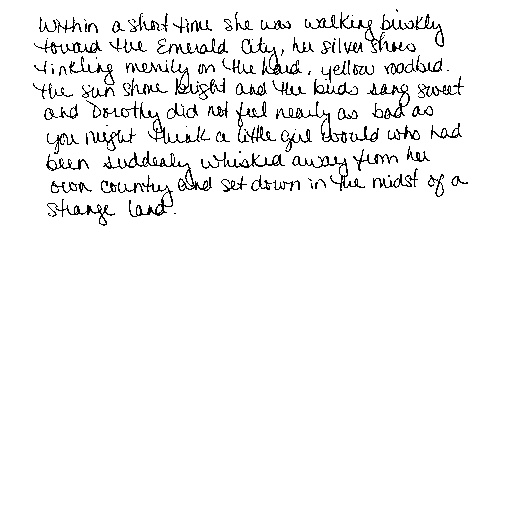 Within a short time she was walking briskly
toward the Emerald City, her silver shoes
tinkling merrily on the hard, yellow roadbed.
The sun shone bright and the birds sang sweet
and Dorothy did not feel nearly as bad as
you might think a little girl would who had
been suddenly whisked away from her
own country and set down in the midst of a
strange land.